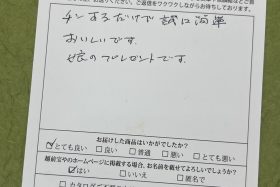 チンするだけで 誠に簡単
おいしいです。
娘のプレゼントです。
お届けした商品はいかがでしたか？
☑とても良い □良い □普通 □悪い □とても悪い
越前宝やのホームページに掲載する場合、お名前を載せてよろしいでしょうか？
☑はい □いいえ □匿名で